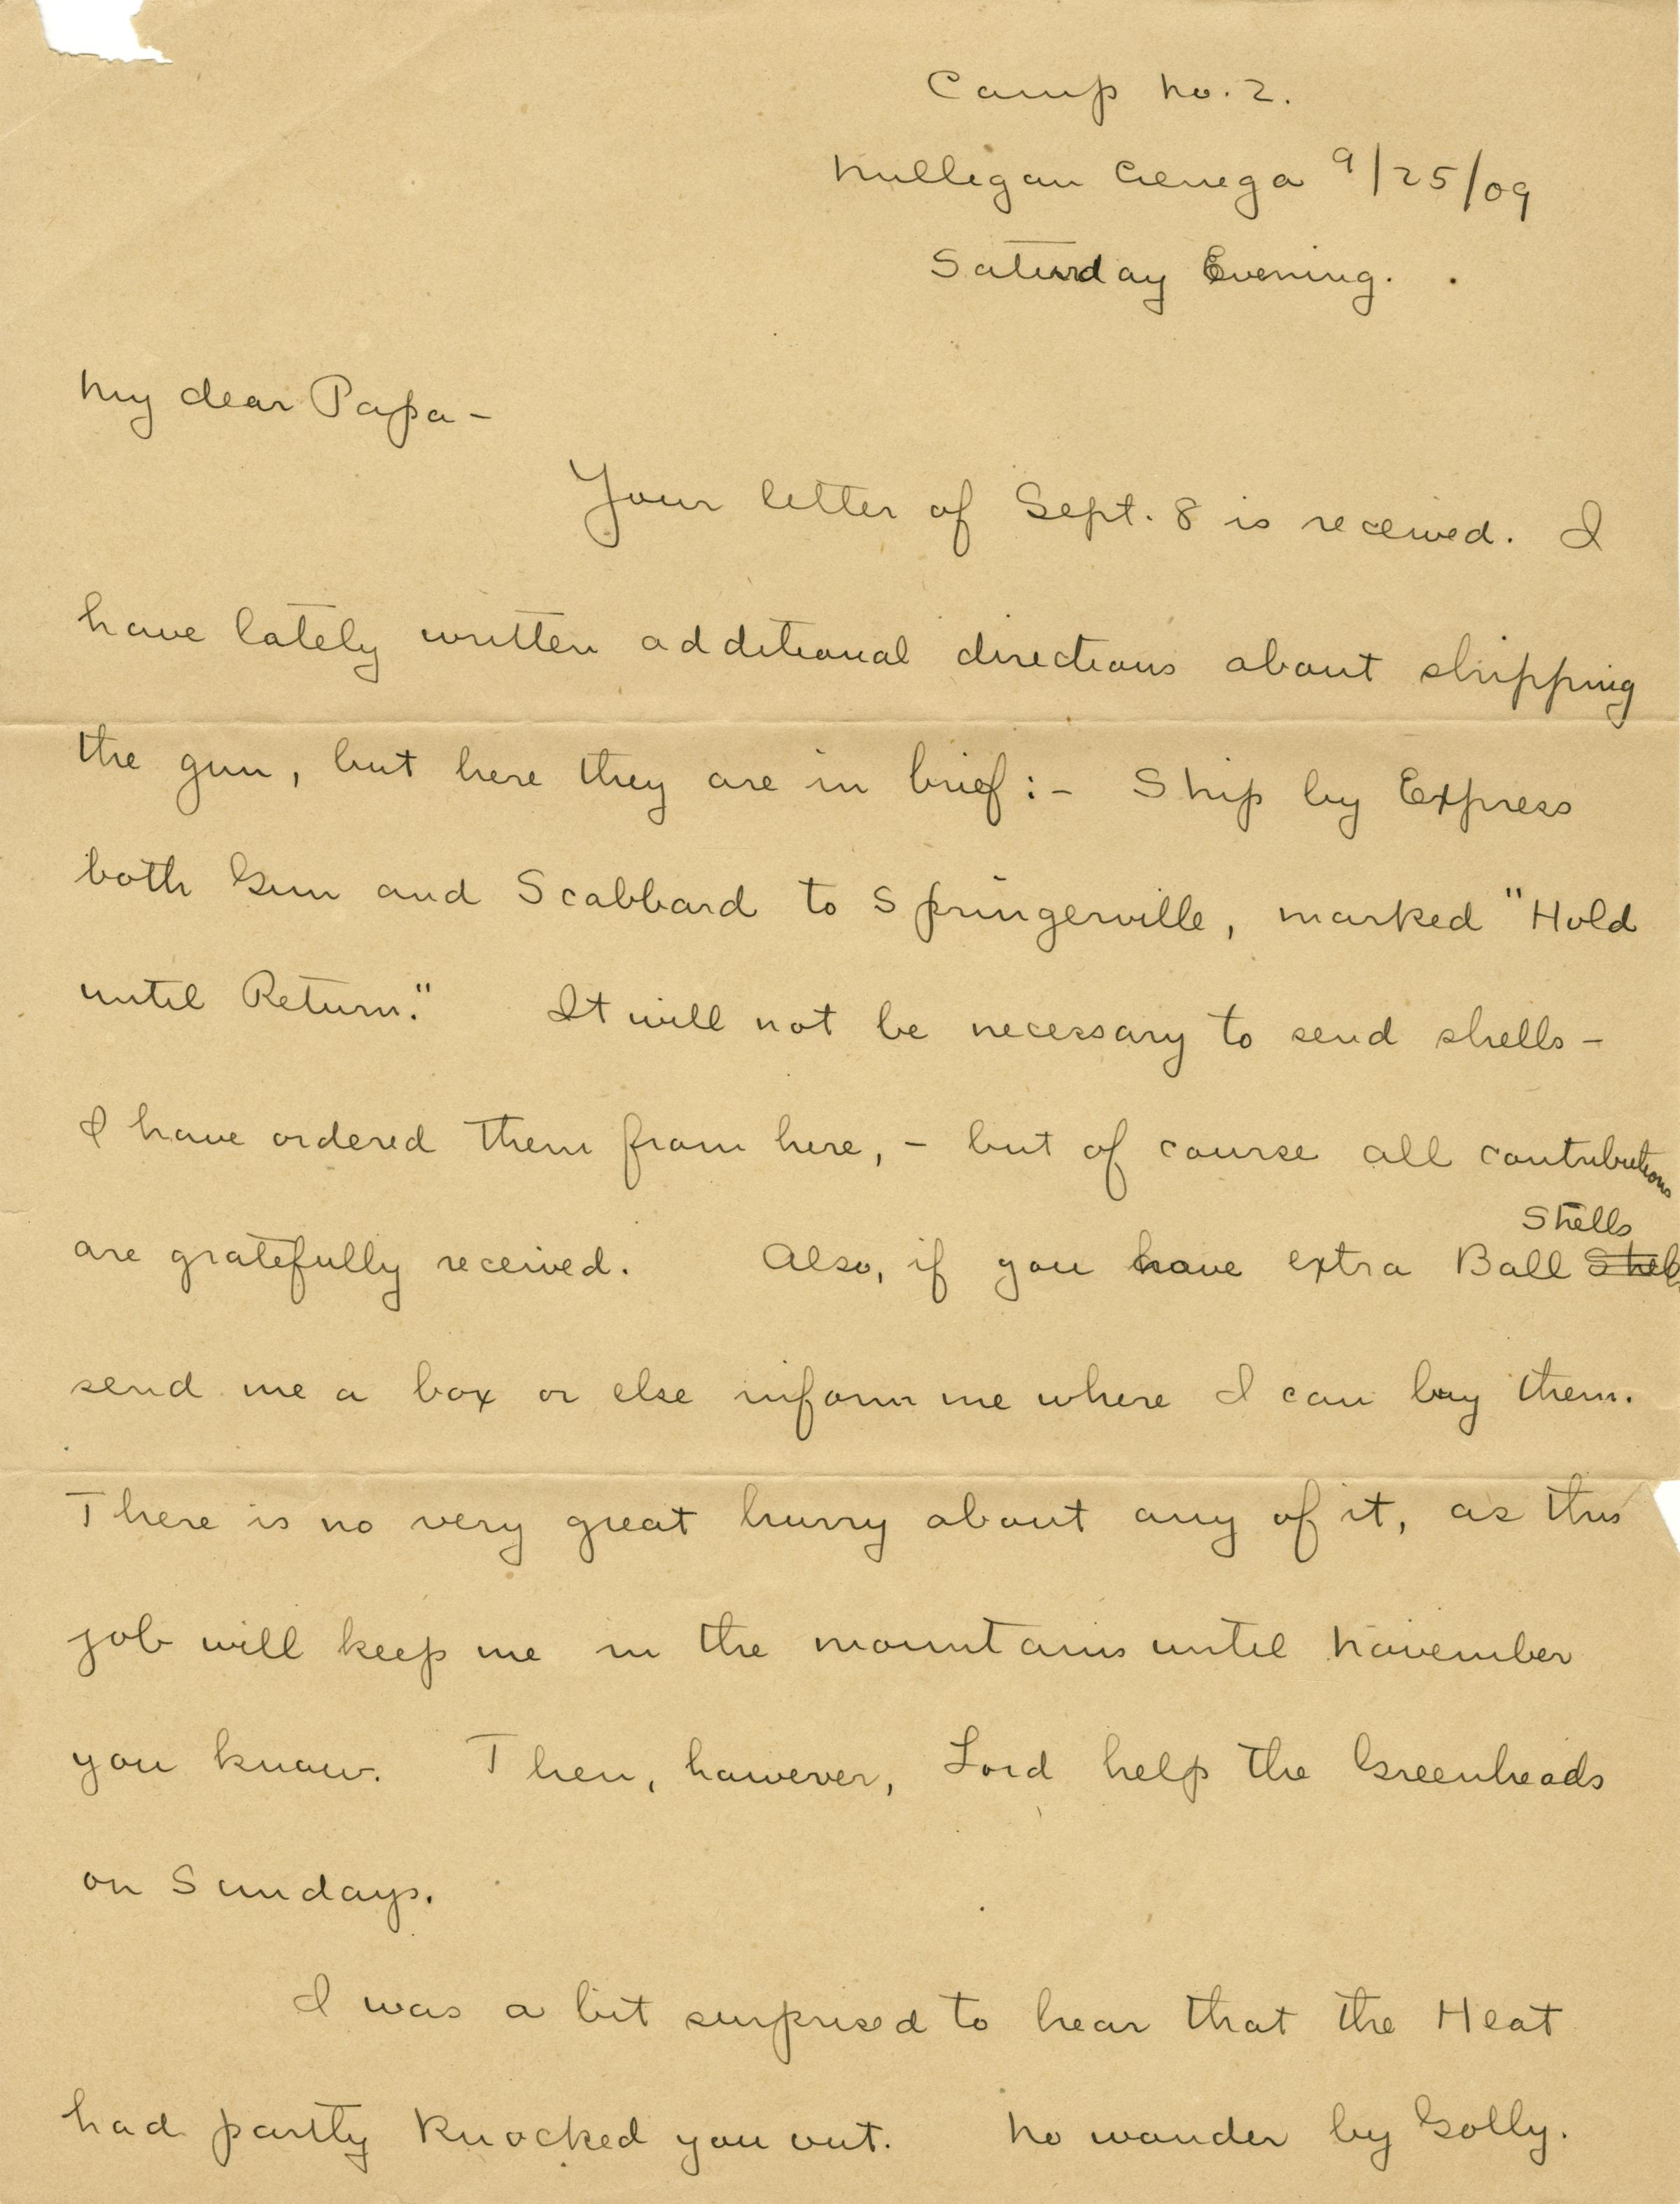 Camp No. 2.
Mulligan Cienega 9/25/09
Saturday Evening.
My dear Papa -
Your letter of Sept. 8 is received. I
have lately written additional directions about shipping
the gun, but here they are in brief :- Ship by Express
both Gun and Scabbard to Springerville, marked "Hold
until Return." It will not be necessary to send shells -
I have ordered them from here, - but of course all contributions
are gratefully received. Also, if you have extra Ball Shells
send me a box or else inform me where I can buy them.
There is no very great hurry about any of it, as this
job will keep me in the mountains until November
you know. Then, however, Lord help the Greenheads
on Sundays.
I was a bit surprised to hear that the Heat
had partly knocked you out. No wonder by Golly.